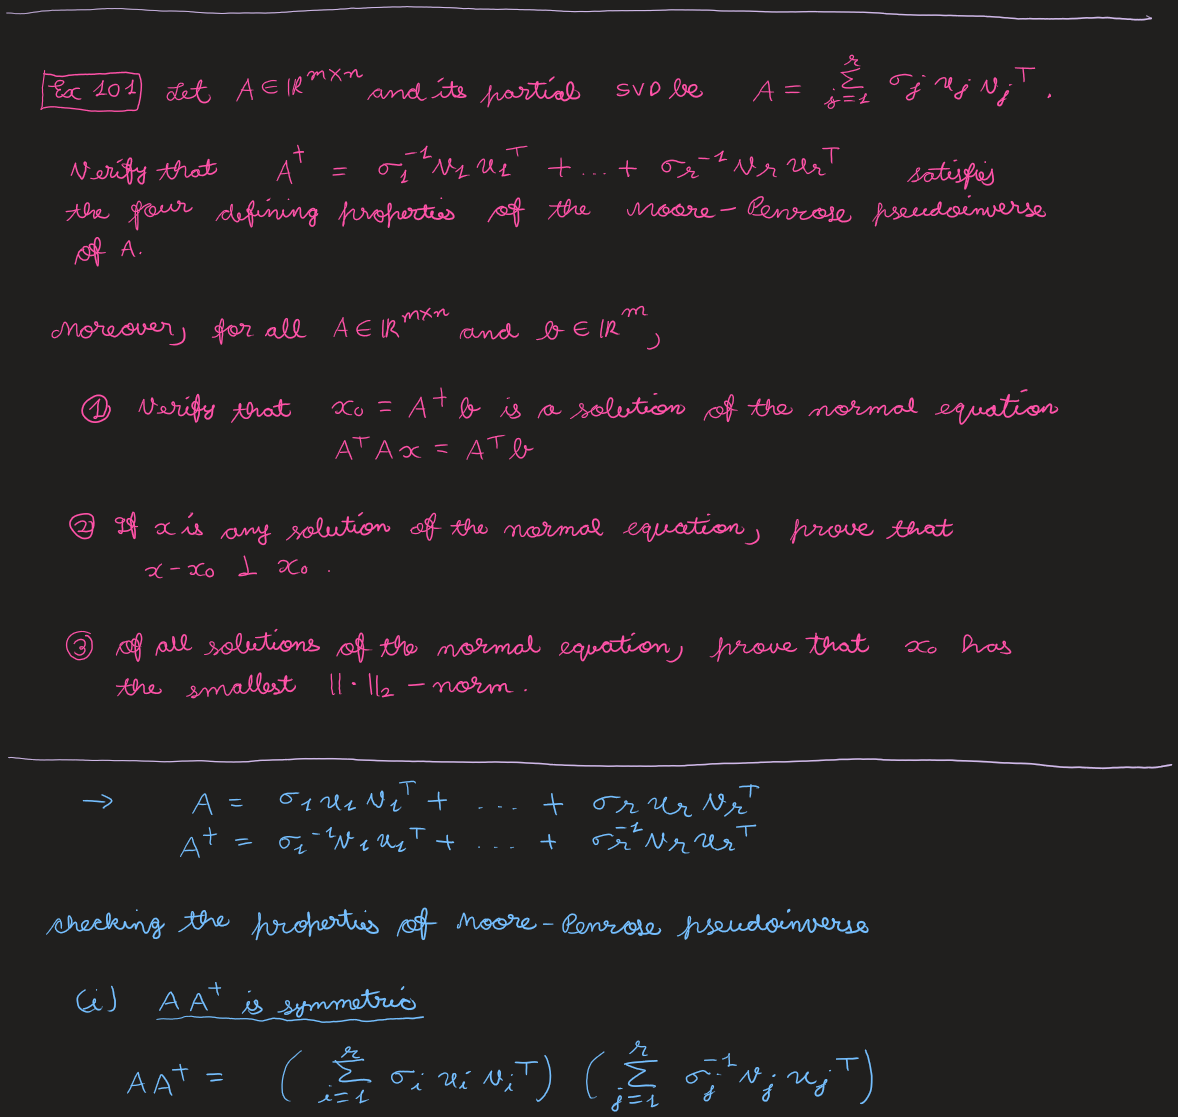 Ex 101 Let A ∈ ℝ^{m×n} and its partial SVD be A = ∑_{j=1}^{r} σ_j u_j v_j^T .
Verify that A^† = σ_1^{-1} v_1 u_1^T + ... + σ_r^{-1} v_r u_r^T satisfies
the four defining properties of the Moore-Penrose pseudoinverse
of A.
Moreover, for all A ∈ ℝ^{m×n} and b ∈ ℝ^m,
① Verify that x_0 = A^† b is a solution of the normal equation
A^T A x = A^T b
② If x is any solution of the normal equation, prove that
x - x_0 ⊥ x_0 .
③ Of all solutions of the normal equation, prove that x_0 has
the smallest ||·||_2 - norm.
→ A = σ_1 u_1 v_1^T + .... + σ_r u_r v_r^T
A^† = σ_1^{-1} v_1 u_1^T + .... + σ_r^{-1} v_r u_r^T
checking the properties of Moore-Penrose pseudoinverse
(i) A A^† is symmetric
A A^† = ( ∑_{i=1}^{r} σ_i u_i v_i^T ) ( ∑_{j=1}^{r} σ_j^{-1} v_j u_j^T )